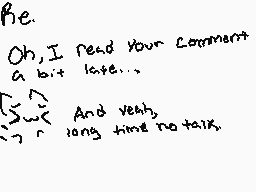 Re.
Oh, I read your comment
a bit late...
And yeah,
long time no talk.